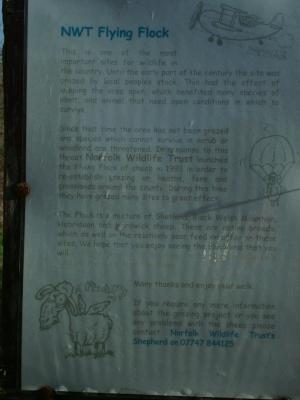 NWT Flying Flock
This is one of the most
important sites for wildlife in
the country. Until the early part of the century the site was
grazed by local peoples stock. This had the effect of
keeping the area open which benefitted many species of
plant and animal that need open conditions in which to
survive.
Since that time the area has not been grazed
and species which cannot survive in scrub or
woodland are threatened. In response to this
threat Norfolk Wildlife Trust launched
the Flying Flock of sheep in 1991 in order to
re-establish grazing on heaths, fens and
grasslands around the county. During this time
they have grazed many sites to great effect.
The Flock is a mixture of Shetland, Black Welsh Mountain,
Hebridean and Herdwick sheep. These are native breeds
which do well on the relatively poor feed on offer on these
sites. We hope that you enjoy seeing the flock and that you
will
Many thanks and enjoy your walk.
If you require any more information
about the grazing project or you see
any problems with the sheep please
contact Norfolk Wildlife Trust's
Shepherd on 07747 844125